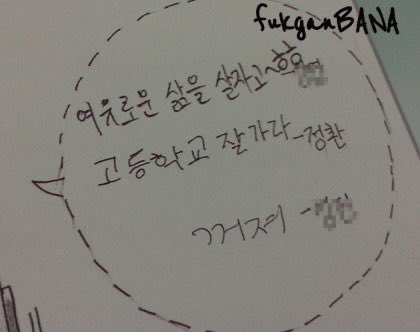 fukganBANA
여유로운 삶을 살자고~
고등학교 잘가라-정환
꺼져 -